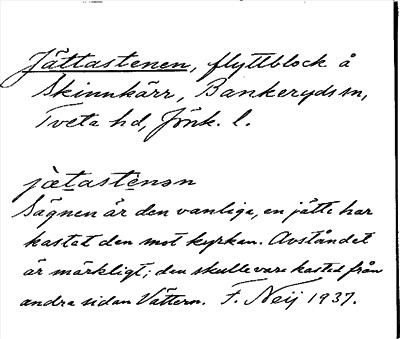 Jättastenen, flyttblock å
Skinnkärr, Bankeryds sn,
Tveta hd, Jönk. l.
jætastenən
Sägnen är den vanliga, en jätte har
kastat den mot kyrkan. Avståndet
är märkligt; den skulle vara kastad från
andra sidan Vättern. F. Neij 1937.